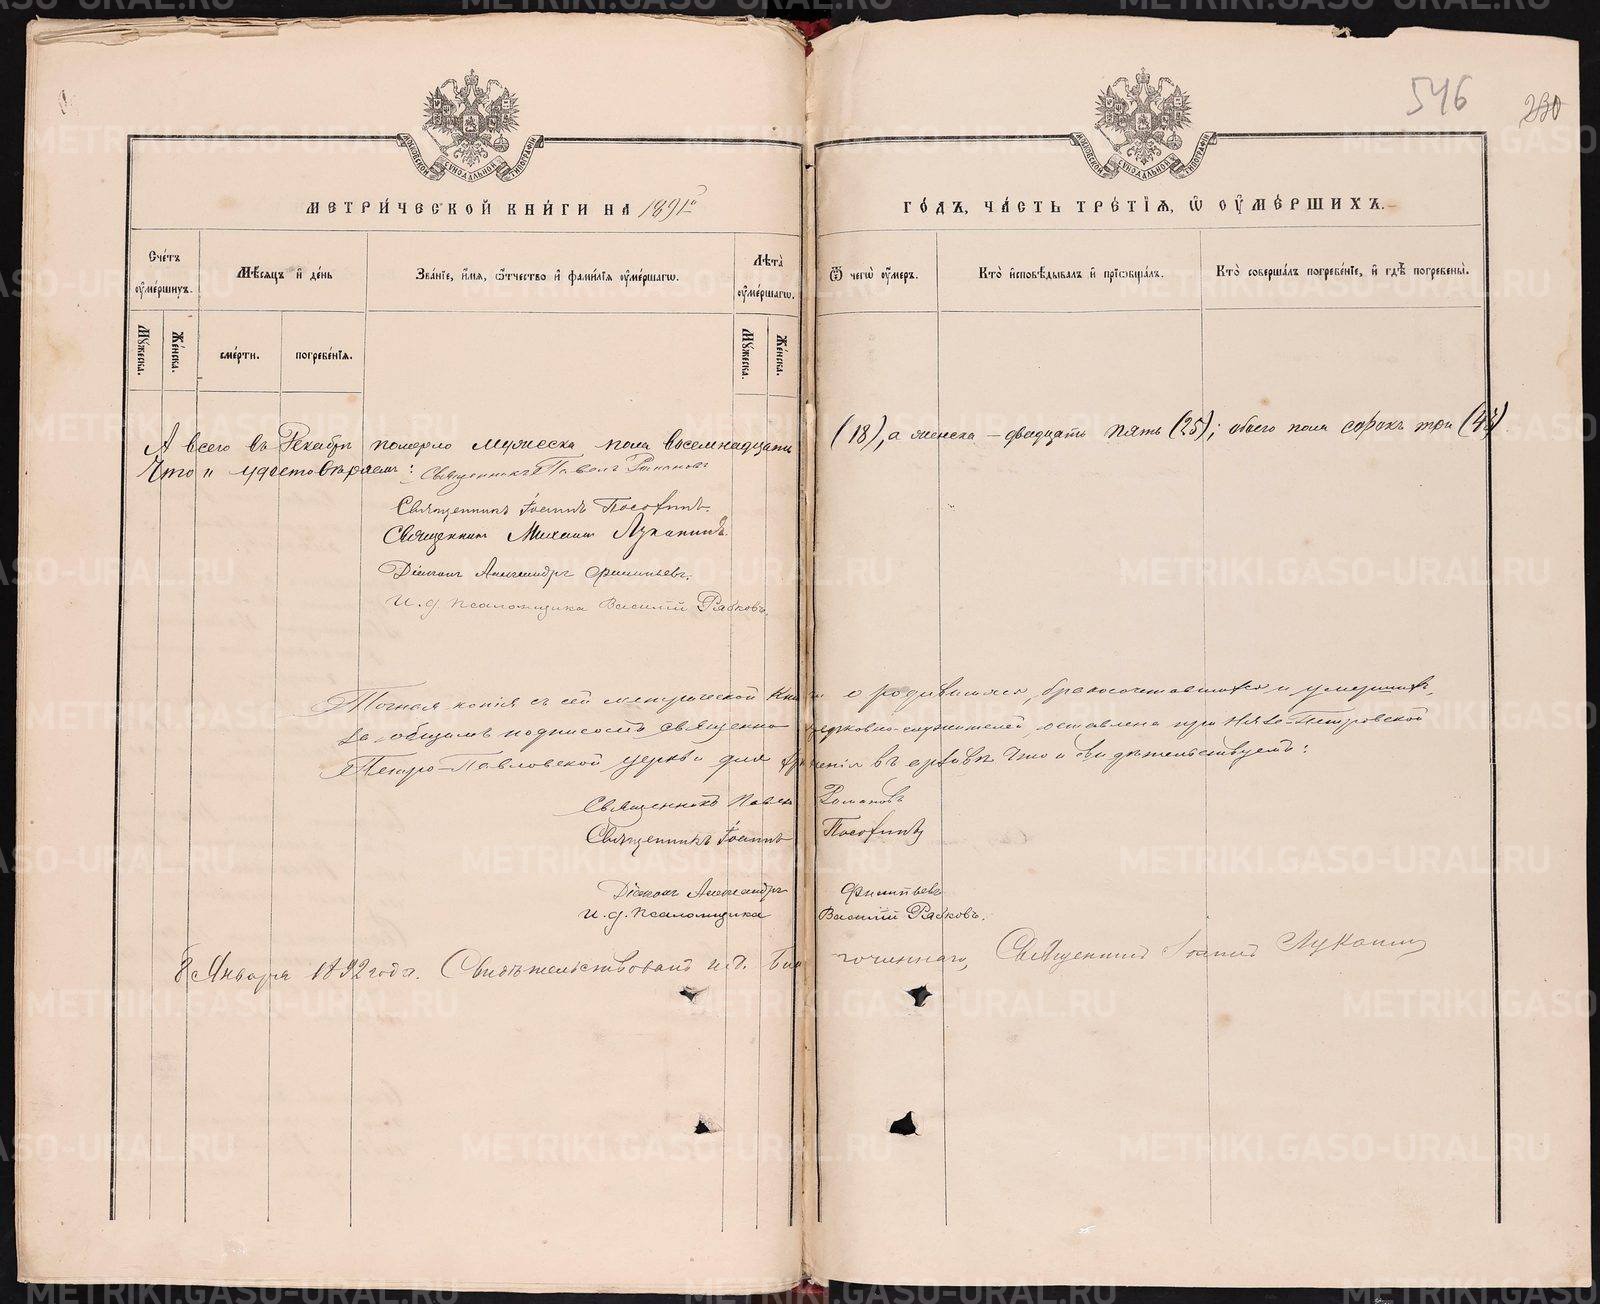 546
230
МЕТРИ́ЧЕСКОЙ КНИ́ГИ НА 1891й
ГО́ДЪ, ЧА́СТЬ ТРЕ́ТІѦ, Ѽ ОУ҆МЕ́РШИХЪ.
МОСКОВСКОЙ СѴНОДАЛЬНОЙ ТИПОГРАФІИ
МОСКОВСКОЙ СѴНОДАЛЬНОЙ ТИПОГРАФІИ
Сче́тъ оу҆ме́ршихъ.
Мѣ́сяцъ и҆ де́нь
Зва́нїе, и҆́мя, ѻ҆́тчество и҆ фами́лїя оу҆ме́ршагѡ.
Лѣ́та оу҆ме́ршагѡ.
Ѿ чегѡ̀ оу҆́меръ.
Кто̀ и҆сповѣ́дывалъ и҆ прїѡбща́лъ.
Кто̀ соверша́лъ погребе́нїе, и҆ гдѣ̀ погребены̀.
Мꙋ́жеска.
Же́нска.
сме́рти.
погребе́нїя.
Мꙋ́жеска.
Же́нска.
А всего въ Декабрѣ померло мужеска пола восемнадцать (18), а женска – двадцать пять (25); обоего пола сорокъ три (43)
Что и удостовѣряемъ: Священникъ Павелъ Романовъ
Священникъ Іоаннъ
Священникъ Михаилъ Луканинъ.
Діаконъ Александръ Филипьевъ.
И. д. псаломщика Василій Рябковъ.
Точная копія съ сей метрической книги о родившихся, бракосочетавшихся и умершихъ,
за общимъ подписомъ священно церковно-служителей, оставлена при Нязе-Петровской
Петро-Павловской церкви для храненія въ архивѣ что и свидѣтельствуемъ:
Священникъ Павелъ Романовъ
Священникъ Іоаннъ
Діаконъ Александръ Филипьевъ
И. д. псаломщика Василій Рябковъ.
8 Января 1892 года. Свидѣтельствовалъ и.д. Благочиннаго, Священникъ Іоаннъ Луканин
METRIKI.GASO-URAL.RU